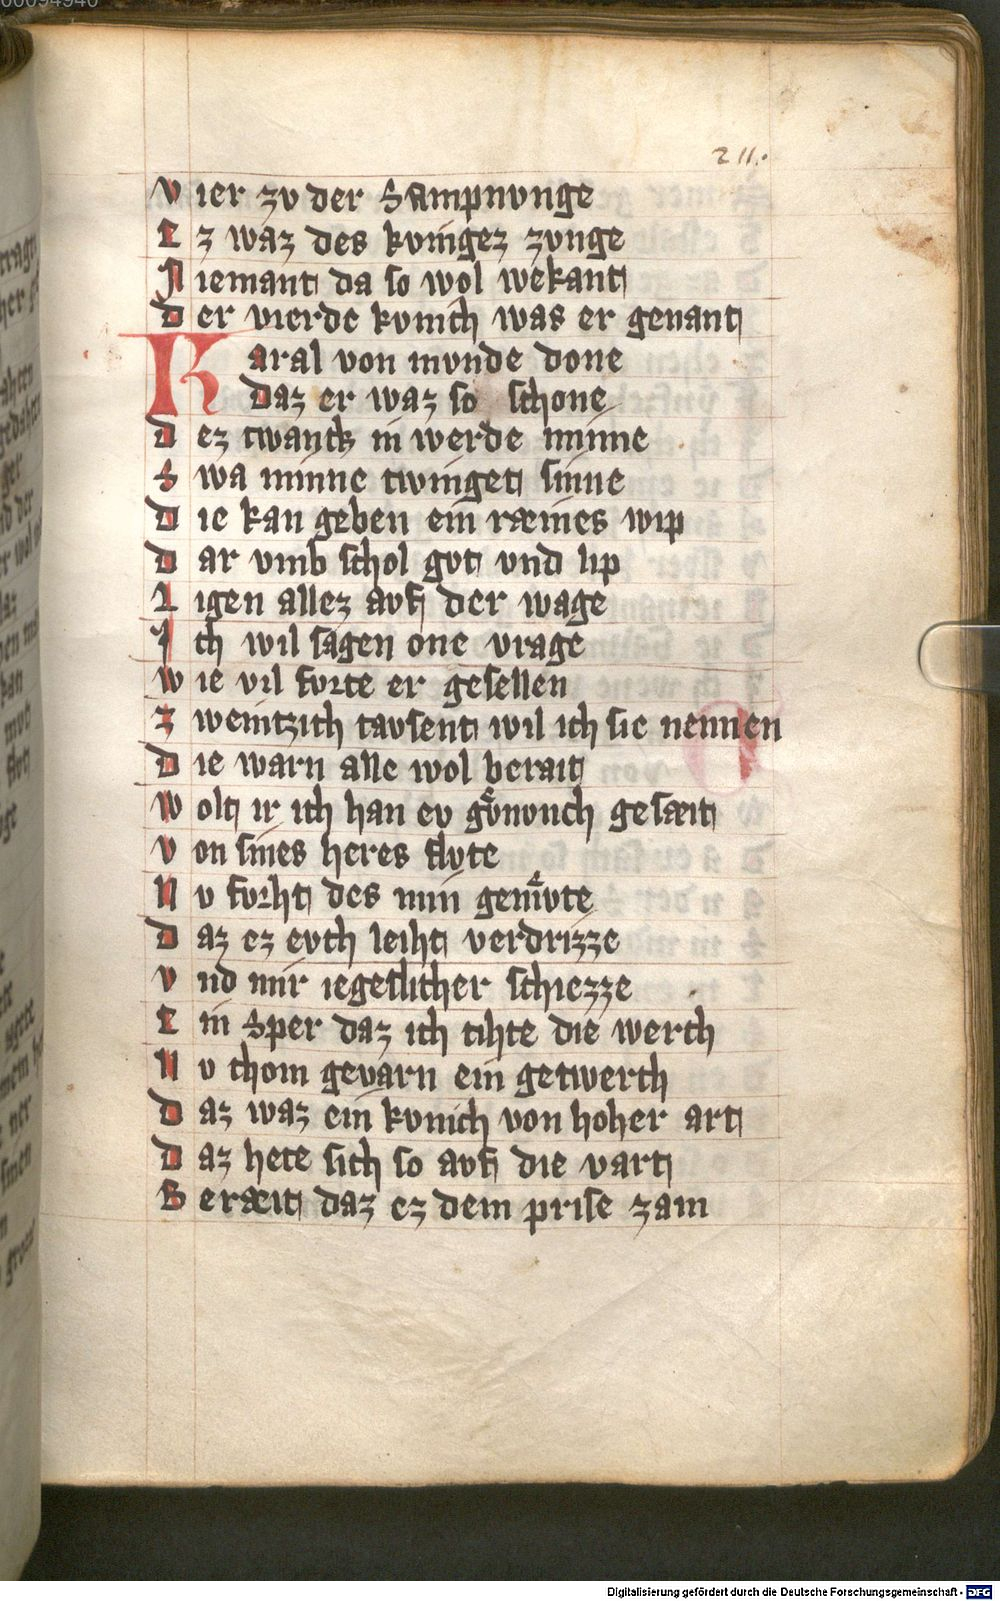 211.
Vier zv der Sampnvnge
Ez waz des kvnigez zvnge
Niemant da so wol wekant
Der vierde kvnich was er genant
Karal von mvnde done
Daz er waz so schone
Dez twanck in werde minne
Swa minne twinget sinne
Die kan geben ein ræines wip
Dar vmb schol gvt vnd lip
Ligen allez avf der wage
Ich wil sagen one vrage
Wie vil fvrte er gesellen
Zwenitzich tavsent wil ich sie nennen
Die warn alle wol berait
Wolt ir ich han ev gvͤnvnch gesæit
Von sines heres flvte
Nv forht des min gemvͤte
Daz ez evch leiht verdrizze
Vnd mir iegeslicher schiezze
Ein Sper daz ich tihte die werch
Nv chom gevarn ein getwerch
Daz waz ein kvnich von hoher art
Daz hete sich so avf die vart
Beræit daz ez dem prise zam
Digitalisierung gefördert durch die Deutsche Forschungsgemeinschaft - DFG